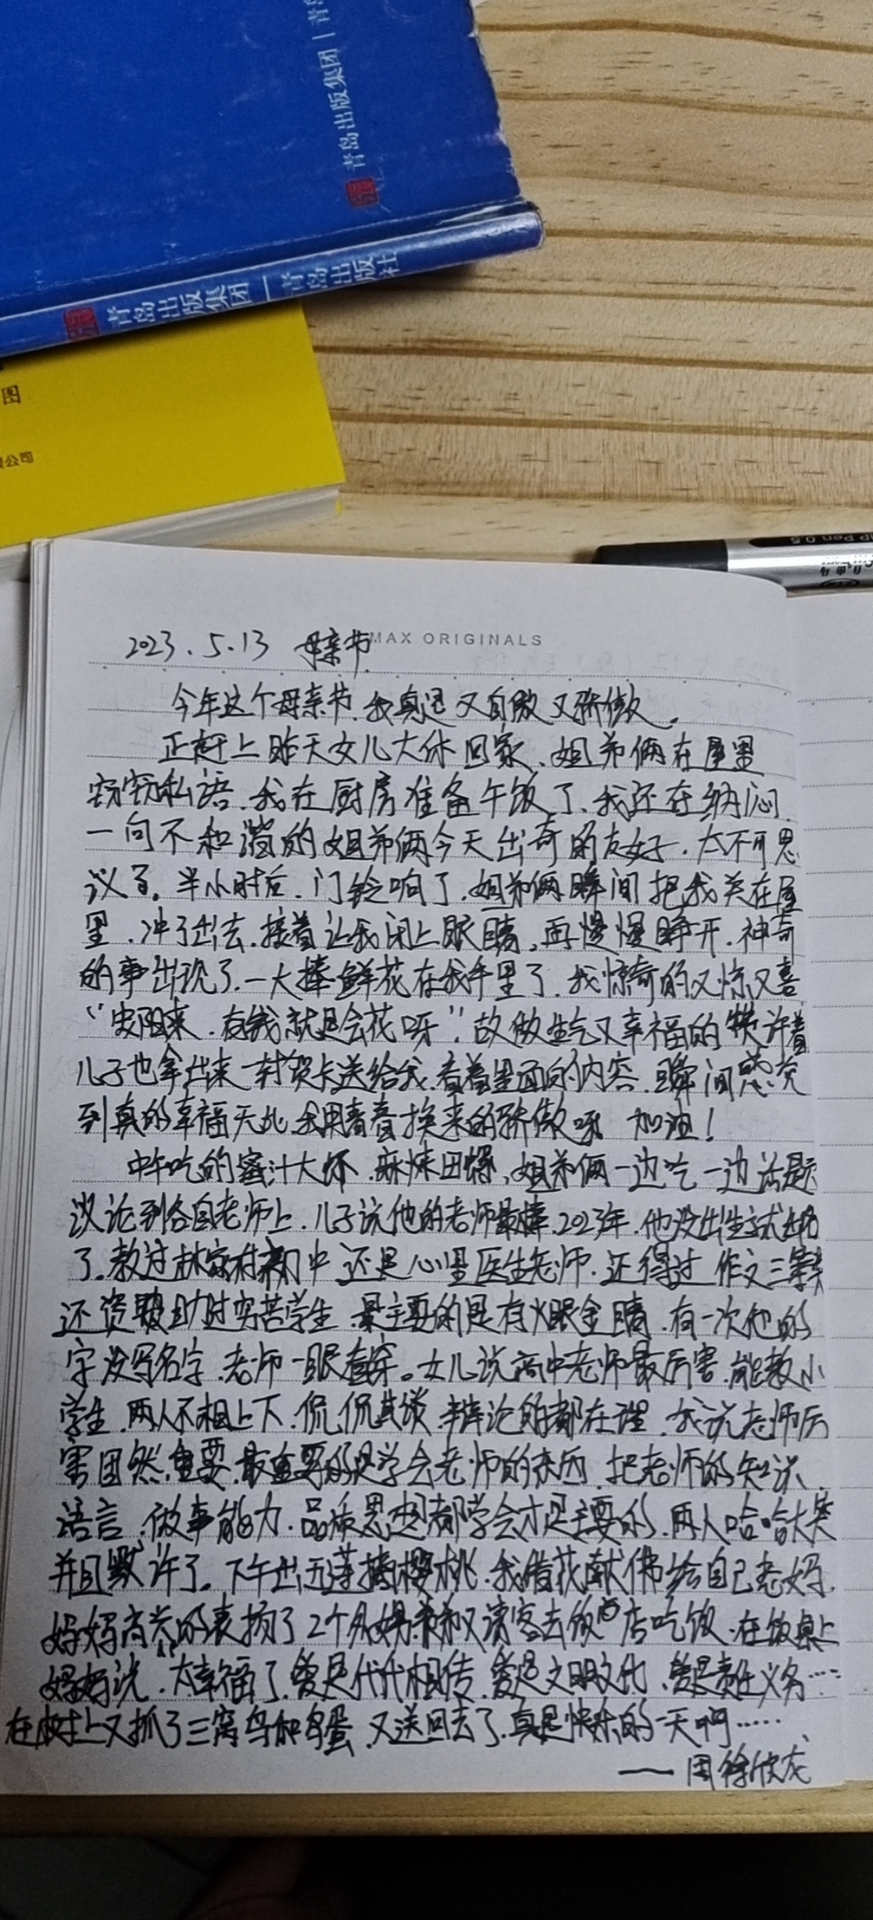 青岛出版集团 | 青岛
青岛出版集团 | 青岛出版社
图
公司
Pen 0.5
MAX ORIGINALS
2023.5.13 母亲节
今年这个母亲节.我真是又自傲又骄傲。
正赶上昨天女儿大休回家、姐弟俩在屋里
窃窃私语.我在厨房准备午饭了.我还在纳闷.
一向不和谐的姐弟俩今天出奇的友好.太不可思
议了。半小时后.门铃响了.姐弟俩瞬间把我关在屋
里.冲了出去.接着让我闭上眼睛.再慢慢睁开.神奇
的事出现了.一大捧鲜花在我手里了.我惊奇的又惊又喜
有钱就是会花呀".故做生气又幸福的
儿子也拿出来一封贺卡送给我.看着里面的内容.瞬间感觉
到真的幸福无比.我用青春换来的骄傲呀 加油!
中午吃的蜜汁大虾.麻辣田螺.姐弟俩一边吃一边话题
议论到各自老师上.儿子说他的老师最棒.2023年.他没出
了.教过 初中 还是心里医生老师.还得过 作文
还资 助过 学生.最主要的是有火眼金睛.有一次他的
字没写名字.老师一眼看穿。女儿说高中老师最厉害.能教小
学生.两人不相上下.侃侃其谈.辩论的都在理.我说老师厉
害固然重要.最重要的是学会老师的东西.把老师的知识.
语言.做事能力.品质思想都学会才是主要的.两人哈哈大笑
并且默许了。下午出五莲摘樱桃.我借花献佛给自己老妈.
妈妈 的表扬了2个外 又请客去饭店吃饭.在饭桌上
妈妈说.太幸福了.爱是代代相传.爱是文明文化.爱是责任义务……
在树上又抓了三窝鸟和鸟蛋.又送回去了.真是快乐的一天啊……
—— 周徐欣龙